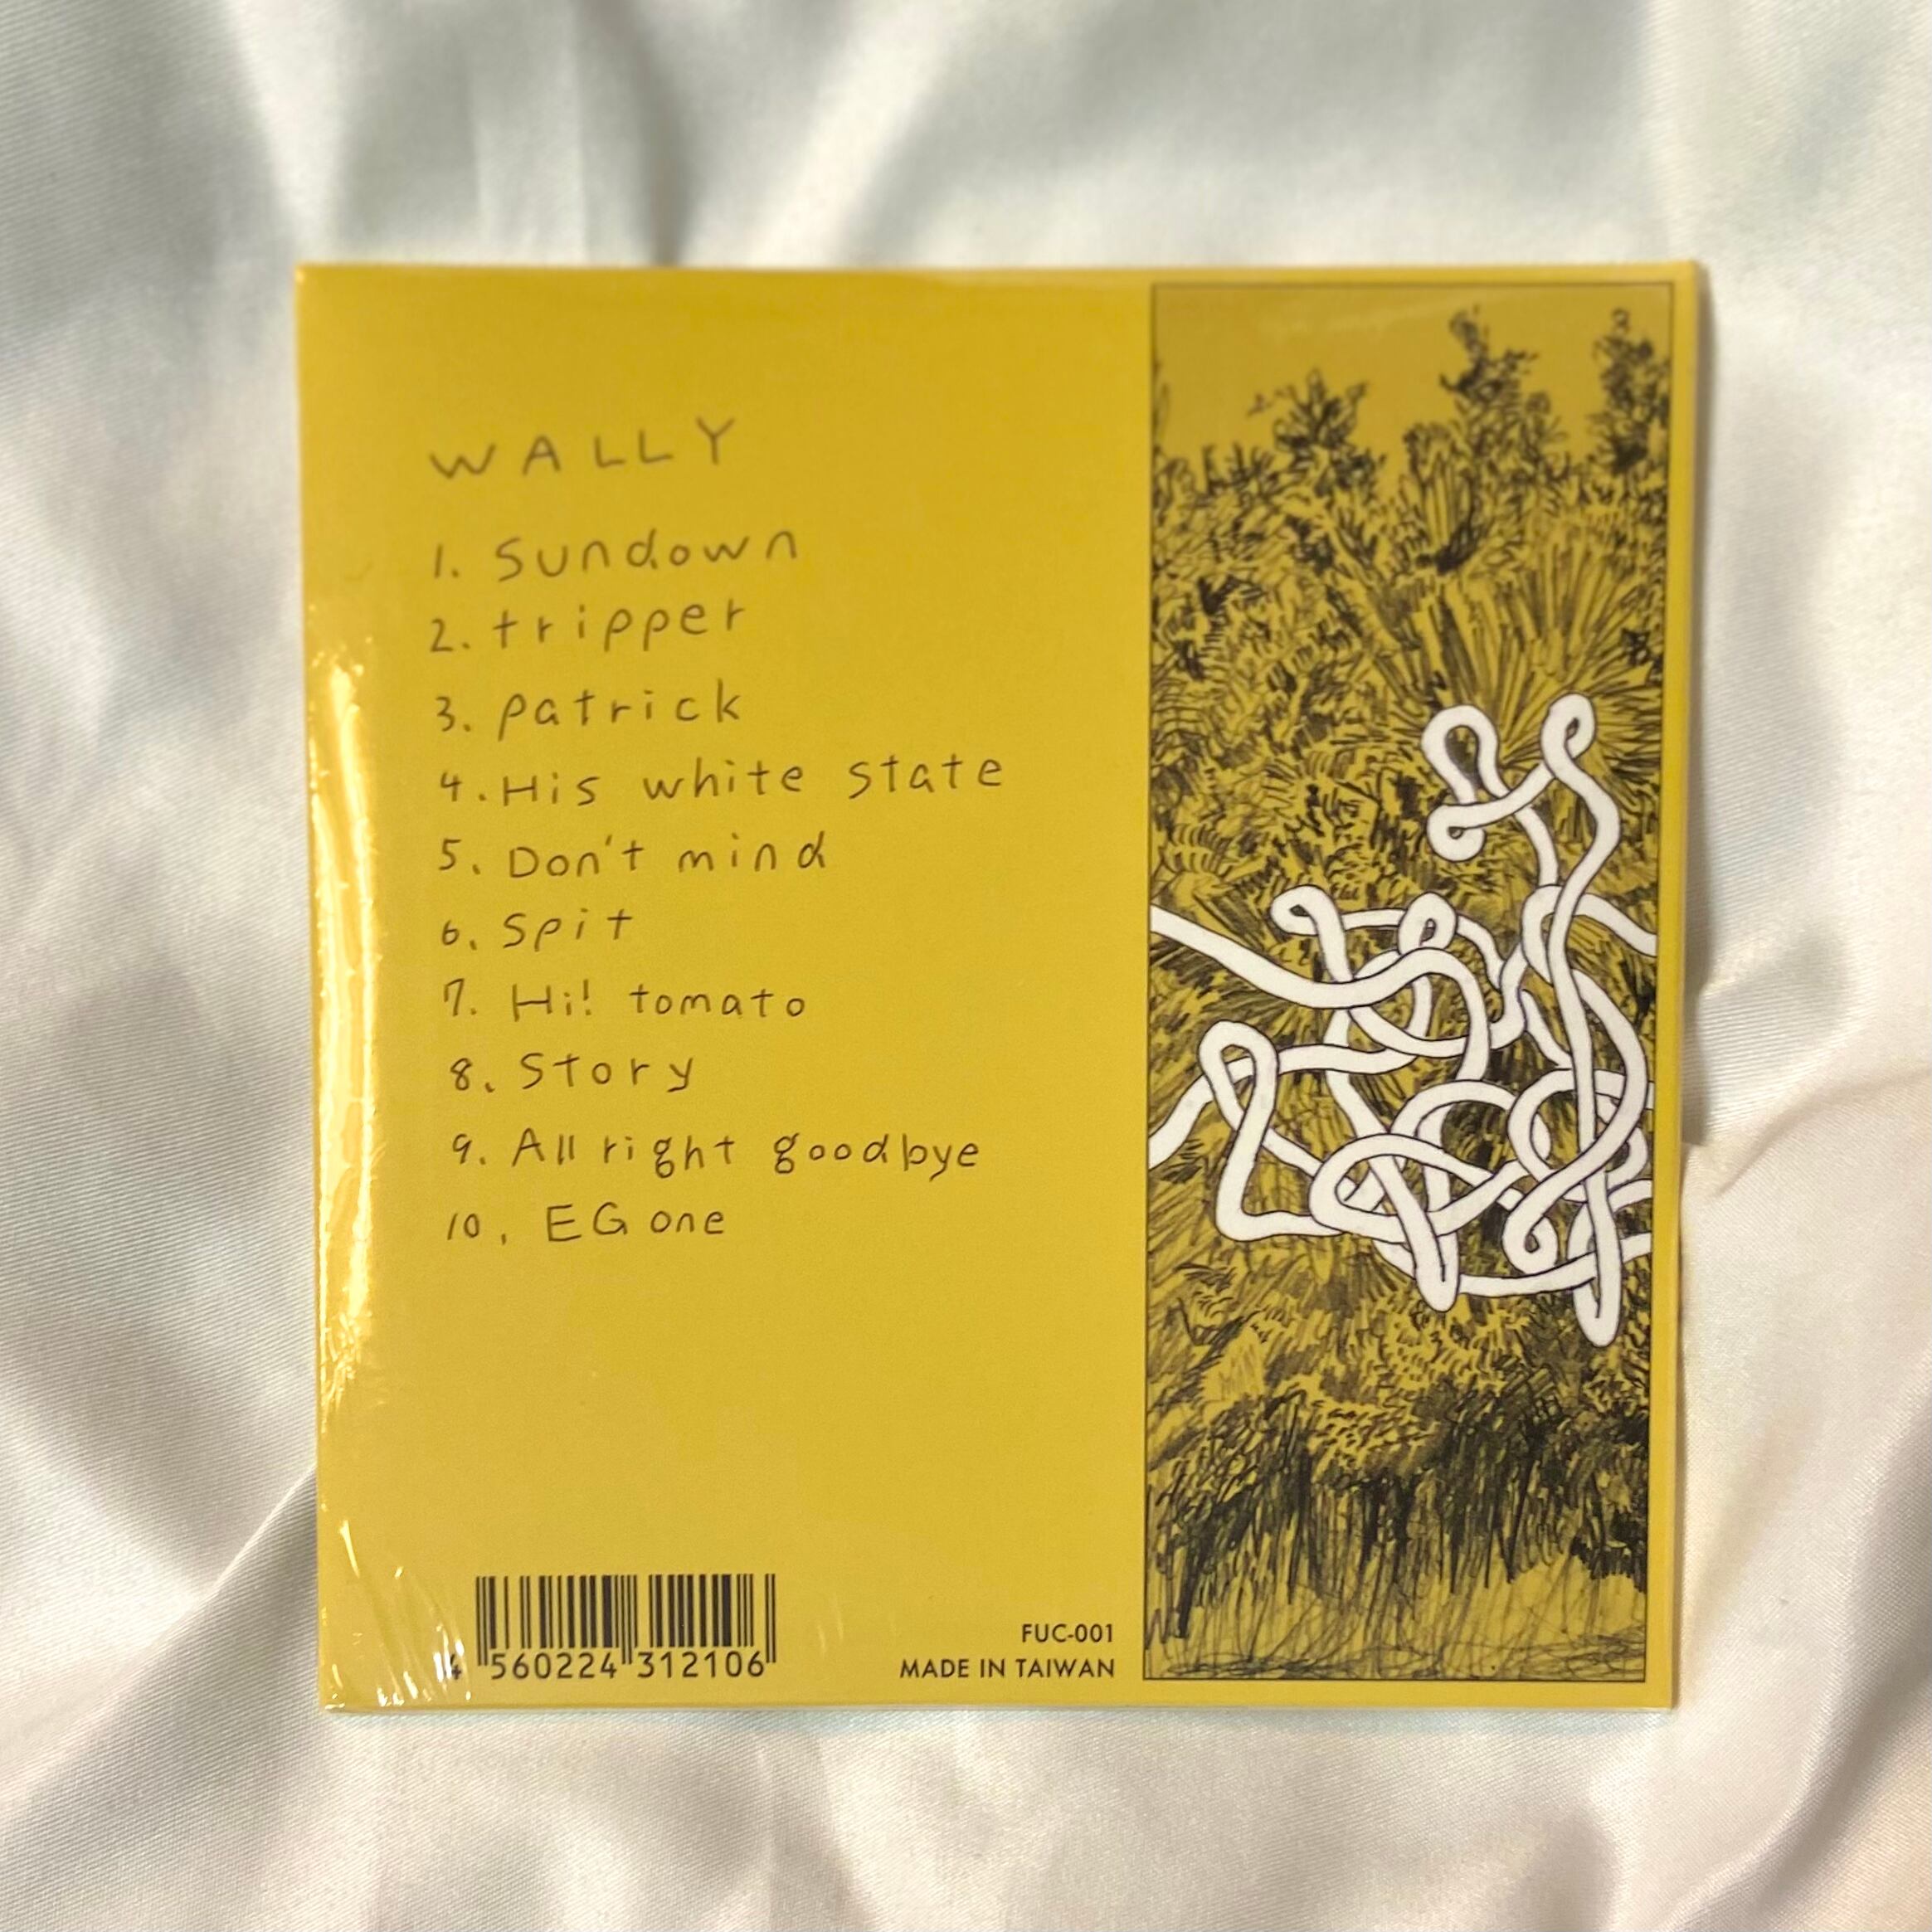 WALLY
1. Sundown
2. tripper
3. patrick
4. His white state
5. Don't mind
6. Spit
7. Hi! tomato
8. Story
9. All right goodbye
10. EG one
4 560224 312106
FUC-001
MADE IN TAIWAN